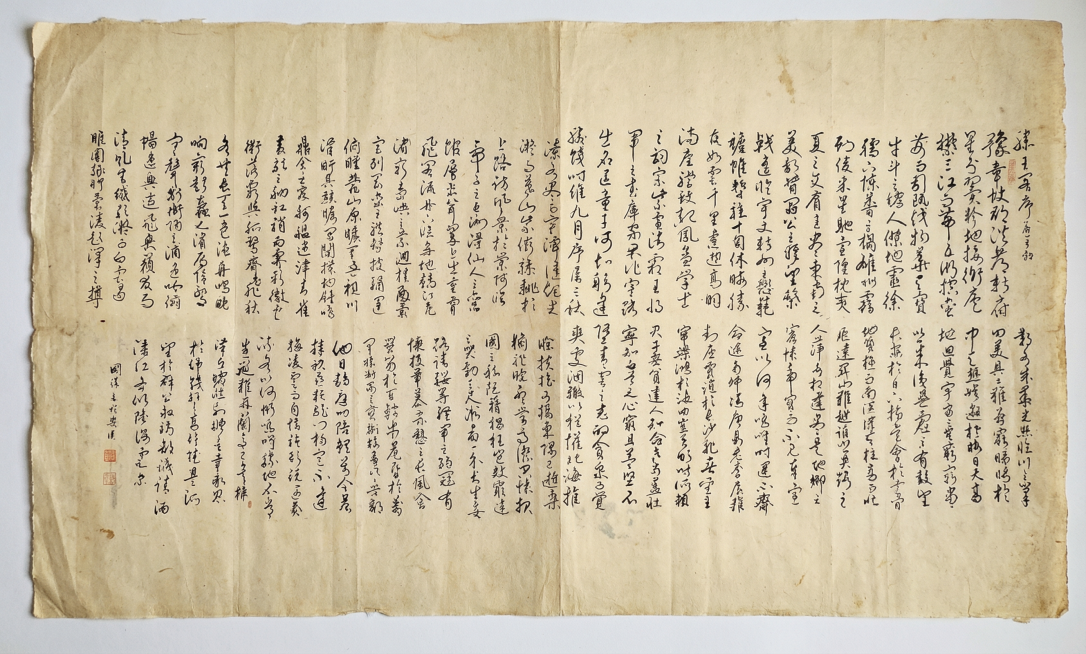 滕王阁序 唐王勃
豫章故郡洪都新府
星分翼轸地接衡庐
襟三江而带五湖控蛮
荆而引瓯越物華天寶
牛斗之墟人傑地靈徐
孺下陳蕃之榻雄州霧
列俊采星馳臺隍枕夷
夏之交賓主盡東南之
美都督閻公之雅望棨
戟遙臨宇文新州之懿範
襜帷暫駐十旬休暇勝
友如雲千里逢迎高朋
滿座騰蛟起鳳孟學士
之詞宗紫電清霜王將
軍之武庫家君作宰路
出名區童子何知躬逢
勝餞時維九月序屬三秋
潦水盡而寒潭清煙光
凝而暮山紫儼驂騑於
上路訪風景於崇阿臨
帝子之長洲得仙人之舊
館層巒聳翠上出重霄
飛閣流丹下臨無地鶴汀鳧
渚窮島嶼之縈迴桂殿蘭
宮列岡巒之體勢披繡闥
俯雕甍山原曠其盈視川
澤盱其駭矚閭閻撲地鐘鳴
鼎食之家舸艦迷津青雀
黃龍之舳虹銷雨霽彩徹雲
衢落霞與孤鶩齊飛秋
水共長天一色漁舟唱晚
響窮彭蠡之濱雁陣驚
寒聲斷衡陽之浦遙吟俯
暢逸興遄飛爽籟發而
清風生纖歌凝而白雲遏
睢園綠竹氣凌彭澤之樽
鄴水朱華光照臨川之筆
四美具二難并窮睇眄於
中天極娛遊於暇日天高
地迥覺宇宙之無窮興盡
悲來識盈虛之有數望
長安於日下指吳會於雲間
地勢極而南溟深天柱高而北
辰遠關山難越誰悲失路之
人萍水相逢盡是他鄉之
客懷帝閽而不見奉宣
室以何年嗚呼時運不齊
命途多舛馮唐易老李廣難
封屈賈誼於長沙非無聖主
竄梁鴻於海曲豈乏明時所賴
君子安貧達人知命老當益壯
寧知白首之心窮且益堅不
墜青雲之志酌貪泉而覺
爽處涸轍以猶懽北海雖
賒扶搖可接東隅已逝桑
榆非晚孟嘗高潔空抱報
國之阮籍猖狂豈效窮途
之哭勃三尺微命一介書生無
路請纓等終軍之弱冠有
懷投筆慕宗愨之長風舍
簪笏於百齡奉晨昏於萬
里非謝家之寶樹接孟氏之芳鄰
他日趨庭叨陪鯉對今晨
捧袂喜託龍門楊意不逢
撫凌雲而自惜鍾期既遇奏
流水以何慚嗚呼勝地不常
盛筵難再蘭亭已矣梓
澤丘墟臨別贈言幸承恩
於偉餞登高作賦是所
望於群公敢竭鄙誠請灑
潘江各傾陸海云爾